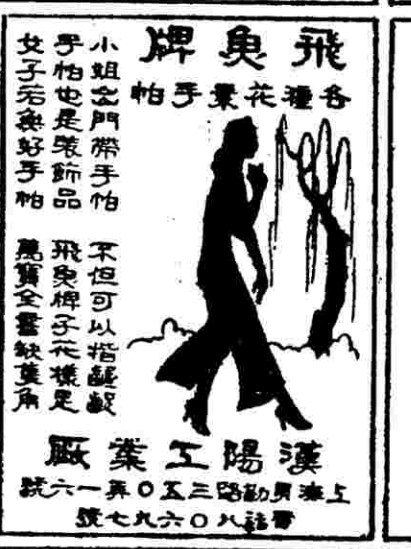 飛魚牌
各種花景手帕
小姐出門帶手帕　不但可以揩齷齪
手帕也是裝飾品　飛魚牌子花樣足
女子若無好手帕　萬寶全書缺隻角
漢陽工業廠
上海貝勒路三五〇弄一六號
電話八〇六九七號